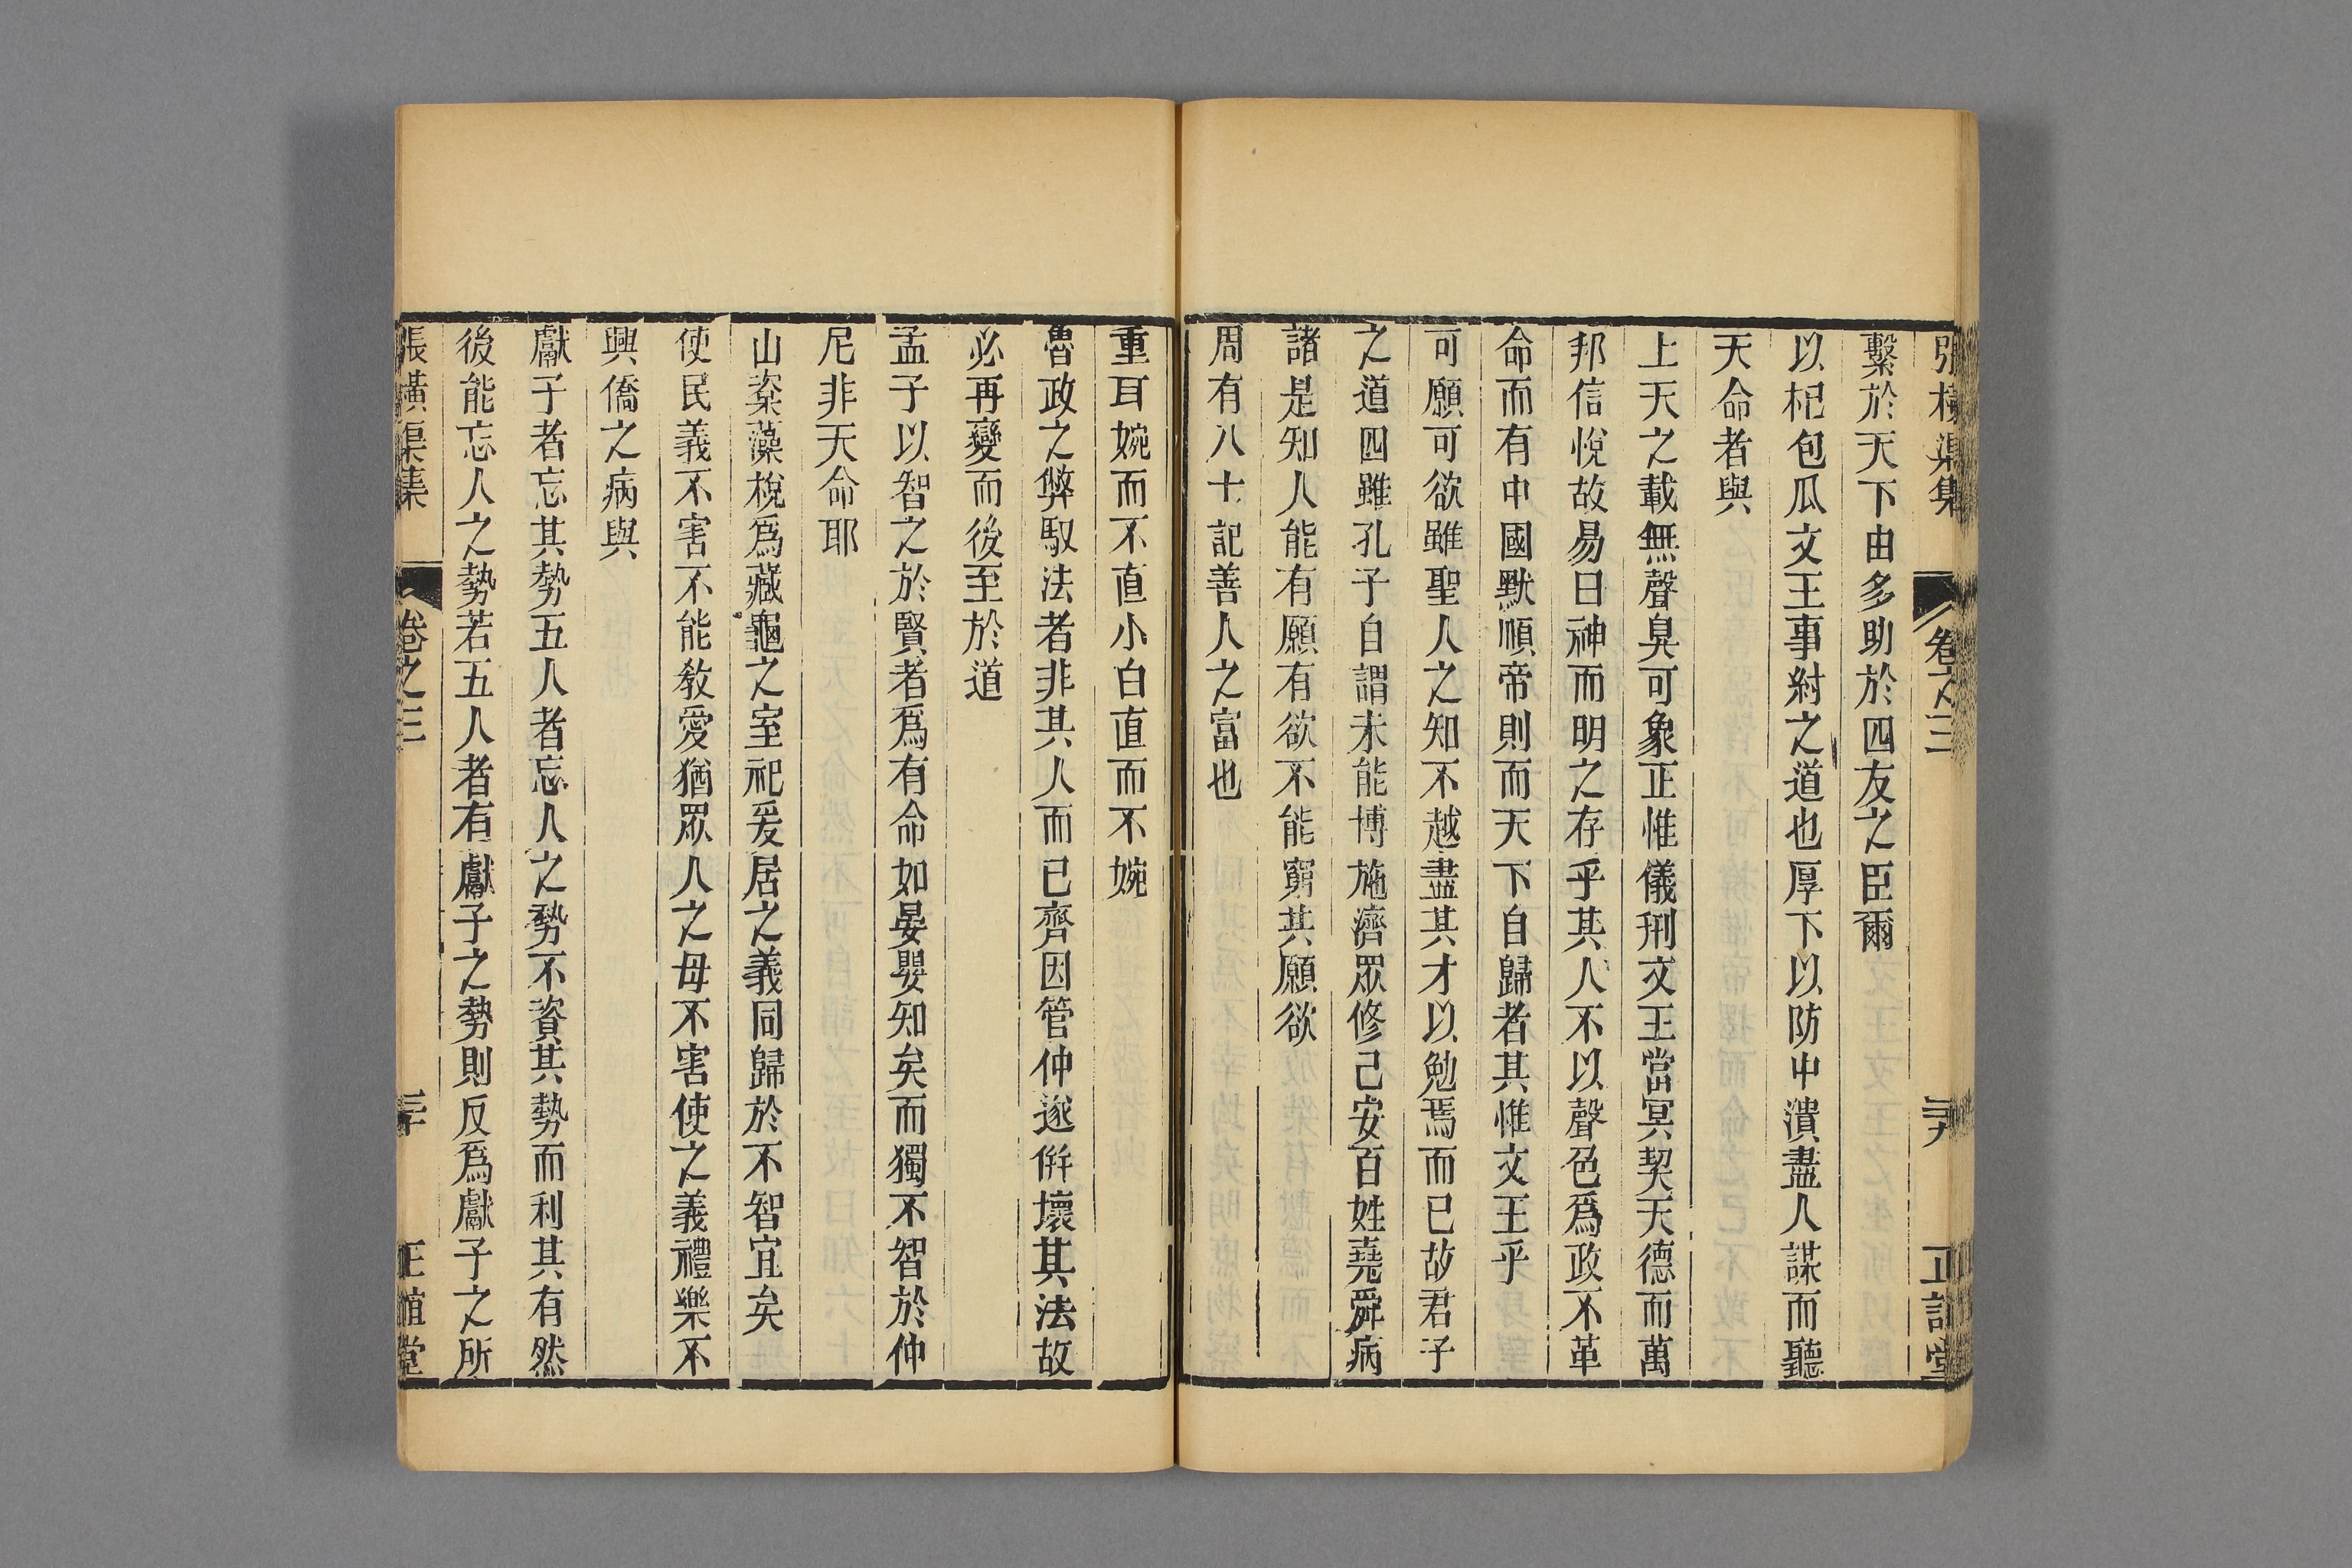 張橫渠集 卷之三 二十九 正誼堂
繫於天下由多助於四友之臣爾
以杞包瓜文王事紂之道也厚下以防中潰盡人謀而聽
天命者與
上天之載無聲臭可象正惟儀刑文王當冥契天德而萬
邦信悅故易曰神而明之存乎其人不以聲色爲政不革
命而有中國默順帝則而天下自歸者其惟文王乎
可願可欲雖聖人之知不越盡其才以勉焉而已故君子
之道四雖孔子自謂未能博施濟眾修己安百姓堯舜病
諸是知人能有願有欲不能窮其願欲
周有八士記善人之富也
重耳婉而不直小白直而不婉
魯政之弊馭法者非其人而已齊因管仲遂倂壞其法故
必再變而後至於道
孟子以智之於賢者爲有命如晏嬰知矣而獨不智於仲
尼非天命耶
山楶藻梲爲藏龜之室祀爰居之義同歸於不智宜矣
使民義不害不能敎愛猶眾人之母不害使之義禮樂不
興僑之病與
獻子者忘其勢五人者忘人之勢不資其勢而利其有然
後能忘人之勢若五人者有獻子之勢則反爲獻子之所
張橫渠集 卷之三 三十 正誼堂